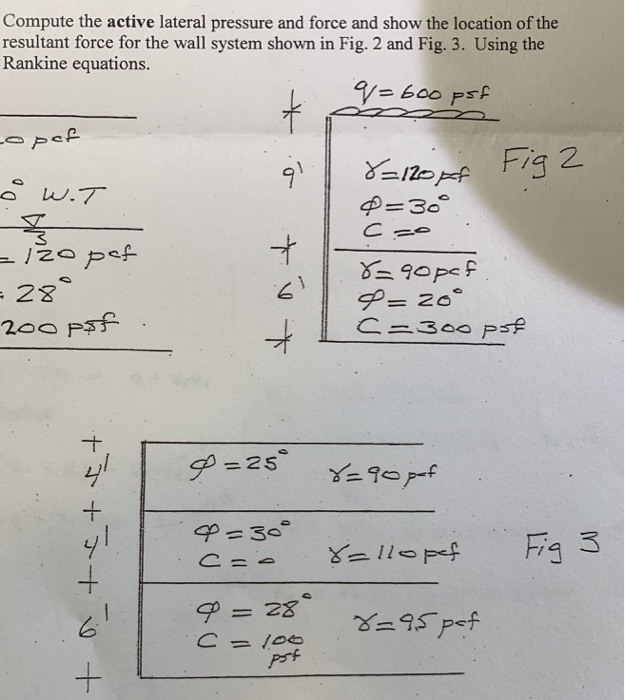 Compute the active lateral pressure and force and show the location of the
resultant force for the wall system shown in Fig. 2 and Fig. 3. Using the
Rankine equations.
q=600 psf
0 pcf
9'
γ=120 pcf
Fig 2
0° W.T
φ=30°
C=0
=120 pcf
γ=90pcf
= 28°
6'
φ=20°
200 psf
C=300 psf
4'
φ=25°
γ=90 pcf
4'
φ=30°
C=0
γ=110 pcf
Fig 3
6'
φ=28°
C=100
psf
γ=95 pcf